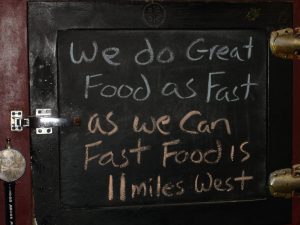 We do Great
Food as Fast
as we can
Fast Food is
11 miles West